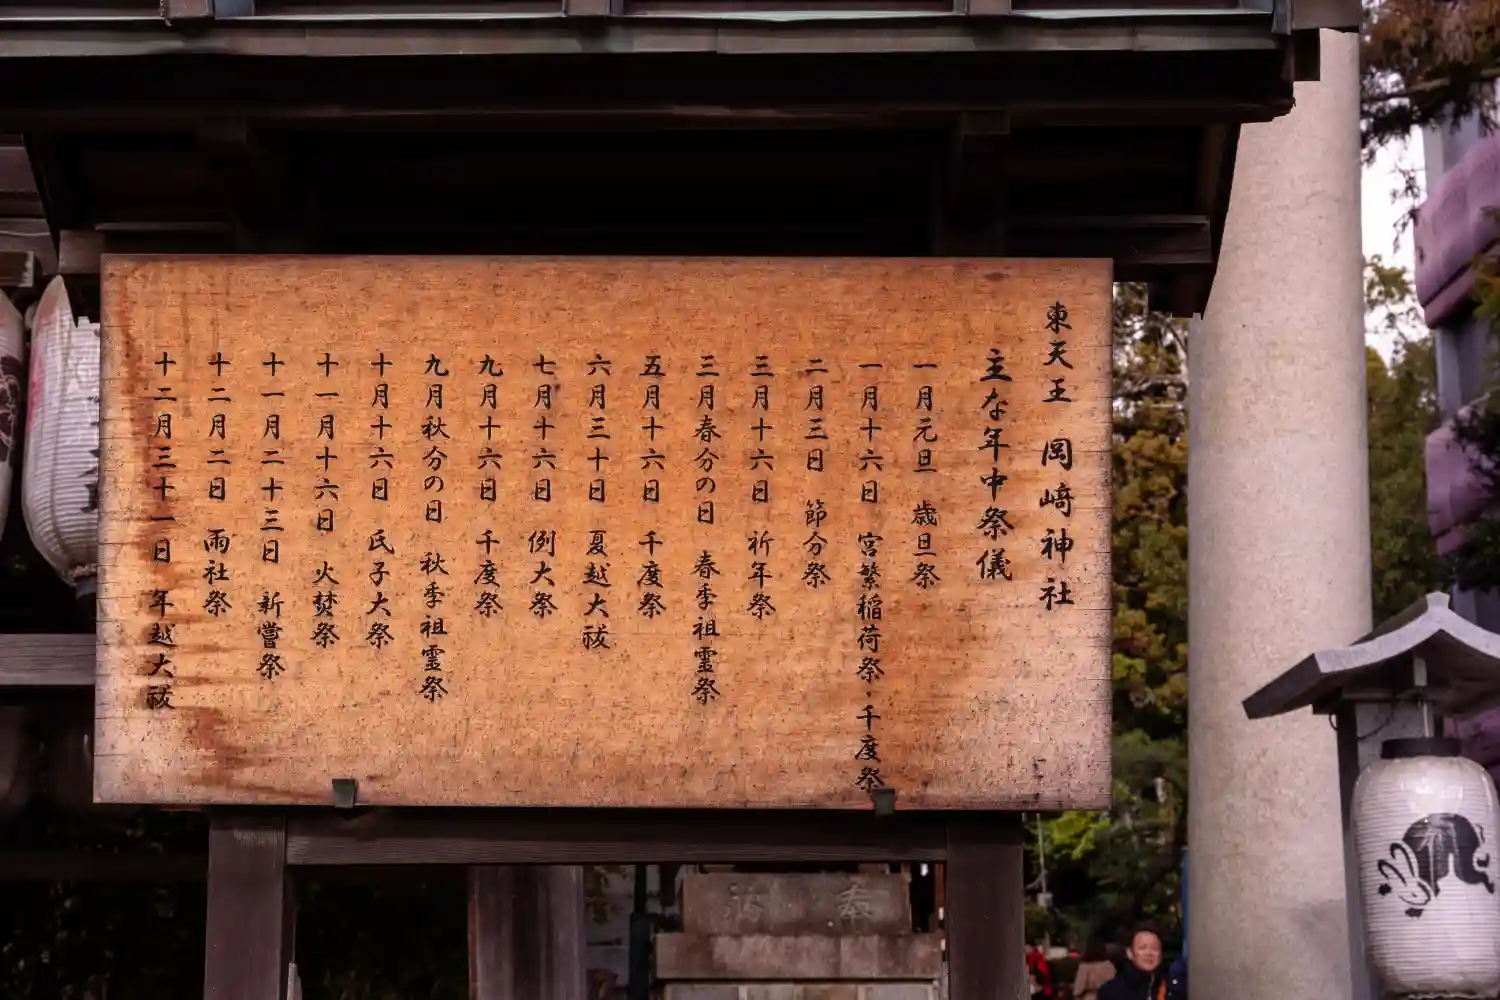 東天王 岡﨑神社
主な年中祭儀
一月元旦 歳旦祭
一月十六日 宮繁稲荷祭・千度祭
二月三日 節分祭
三月十六日 祈年祭
三月春分の日 春季祖霊祭
五月十六日 千度祭
六月三十日 夏越大祓
七月十六日 例大祭
九月十六日 千度祭
九月秋分の日 秋季祖霊祭
十月十六日 氏子大祭
十一月十六日 火焚祭
十一月二十三日 新嘗祭
十二月二日 雨社祭
十二月三十一日 年越大祓
奉納